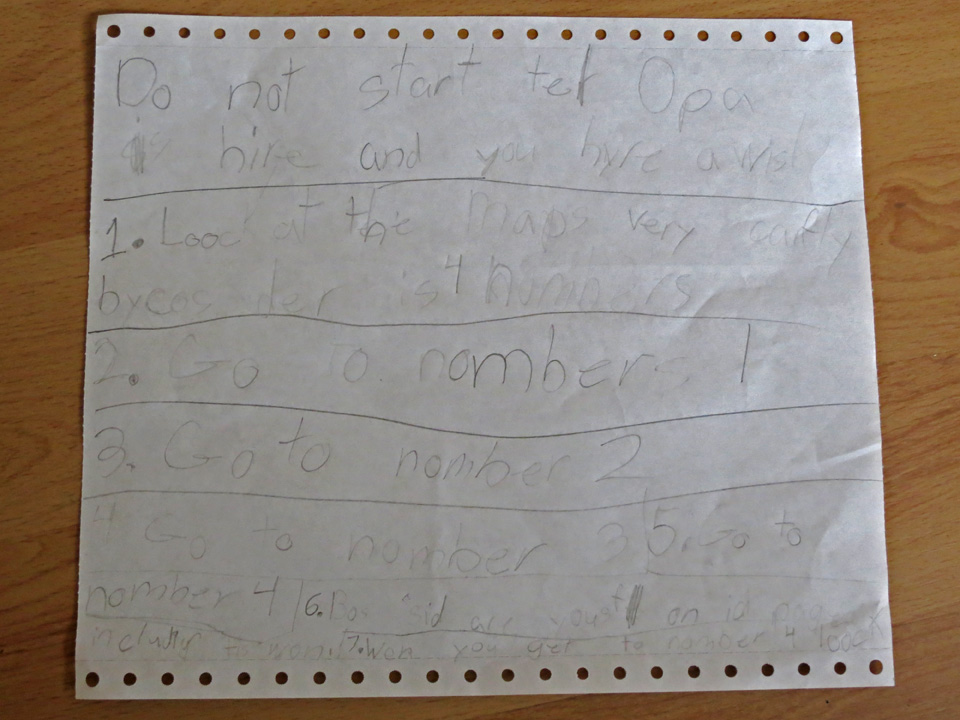 Do not start tel Opa
is hire and you hyre a wisl
1. Looc at the Maps very
bycos der is 4 numbers
2. Go to nombers 1
3. Go to nomber 2
4 Go to nomber 3 5. Go to
nomber 4 6. sid are on id
7. Won you get to nomber 4 loock